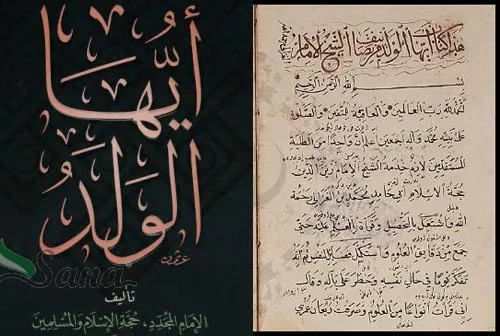 أَيُّهَا
الوَلَدُ
Sana
تأليف
الإمام المجدّد، حجّة الإسلام والمسلمين
هذا كتاب ايها الولد الشيخ الامام
بسم الله الرحمن الرحيم
الحمد لله رب العالمين والعاقبة للمتقين والصلوة
على نبيه محمد وآله اجمعين اعلم ان واحدا من الطلبة
المتقدمين لازم خدمة الشيخ الامام زين الدين
حجة الاسلام ابي حامد محمد بن الغزالي رحمة
الله واشتغل بالتحصيل وقراءة العلم عليه حتى
جمع من دقايق العلوم واستكمل فضائل النفس ثم انه
تفكر يوما في حال نفسه وخطر على باله وقال
اني قرأت انواعا من العلوم وصرفت ريعان عمري